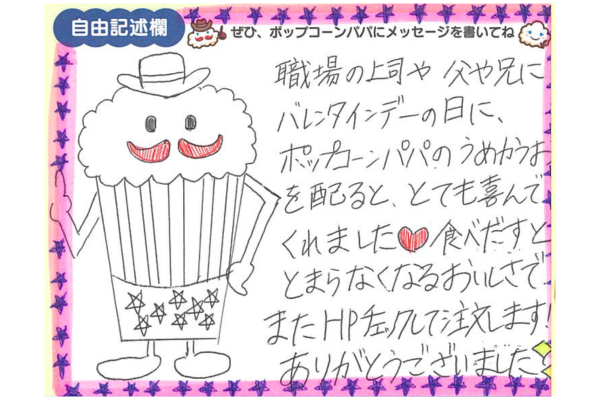 自由記述欄
ぜひ、ポップコーンパパにメッセージを書いてね
職場の上司や 父や兄に
バレンタインデーの日に、
ポップコーンパパのうめかつお
を配ると、とても喜んで
くれました♥食べだすと
とまらなくなるおいしさで
またHPチェックして注文します!
ありがとうございました